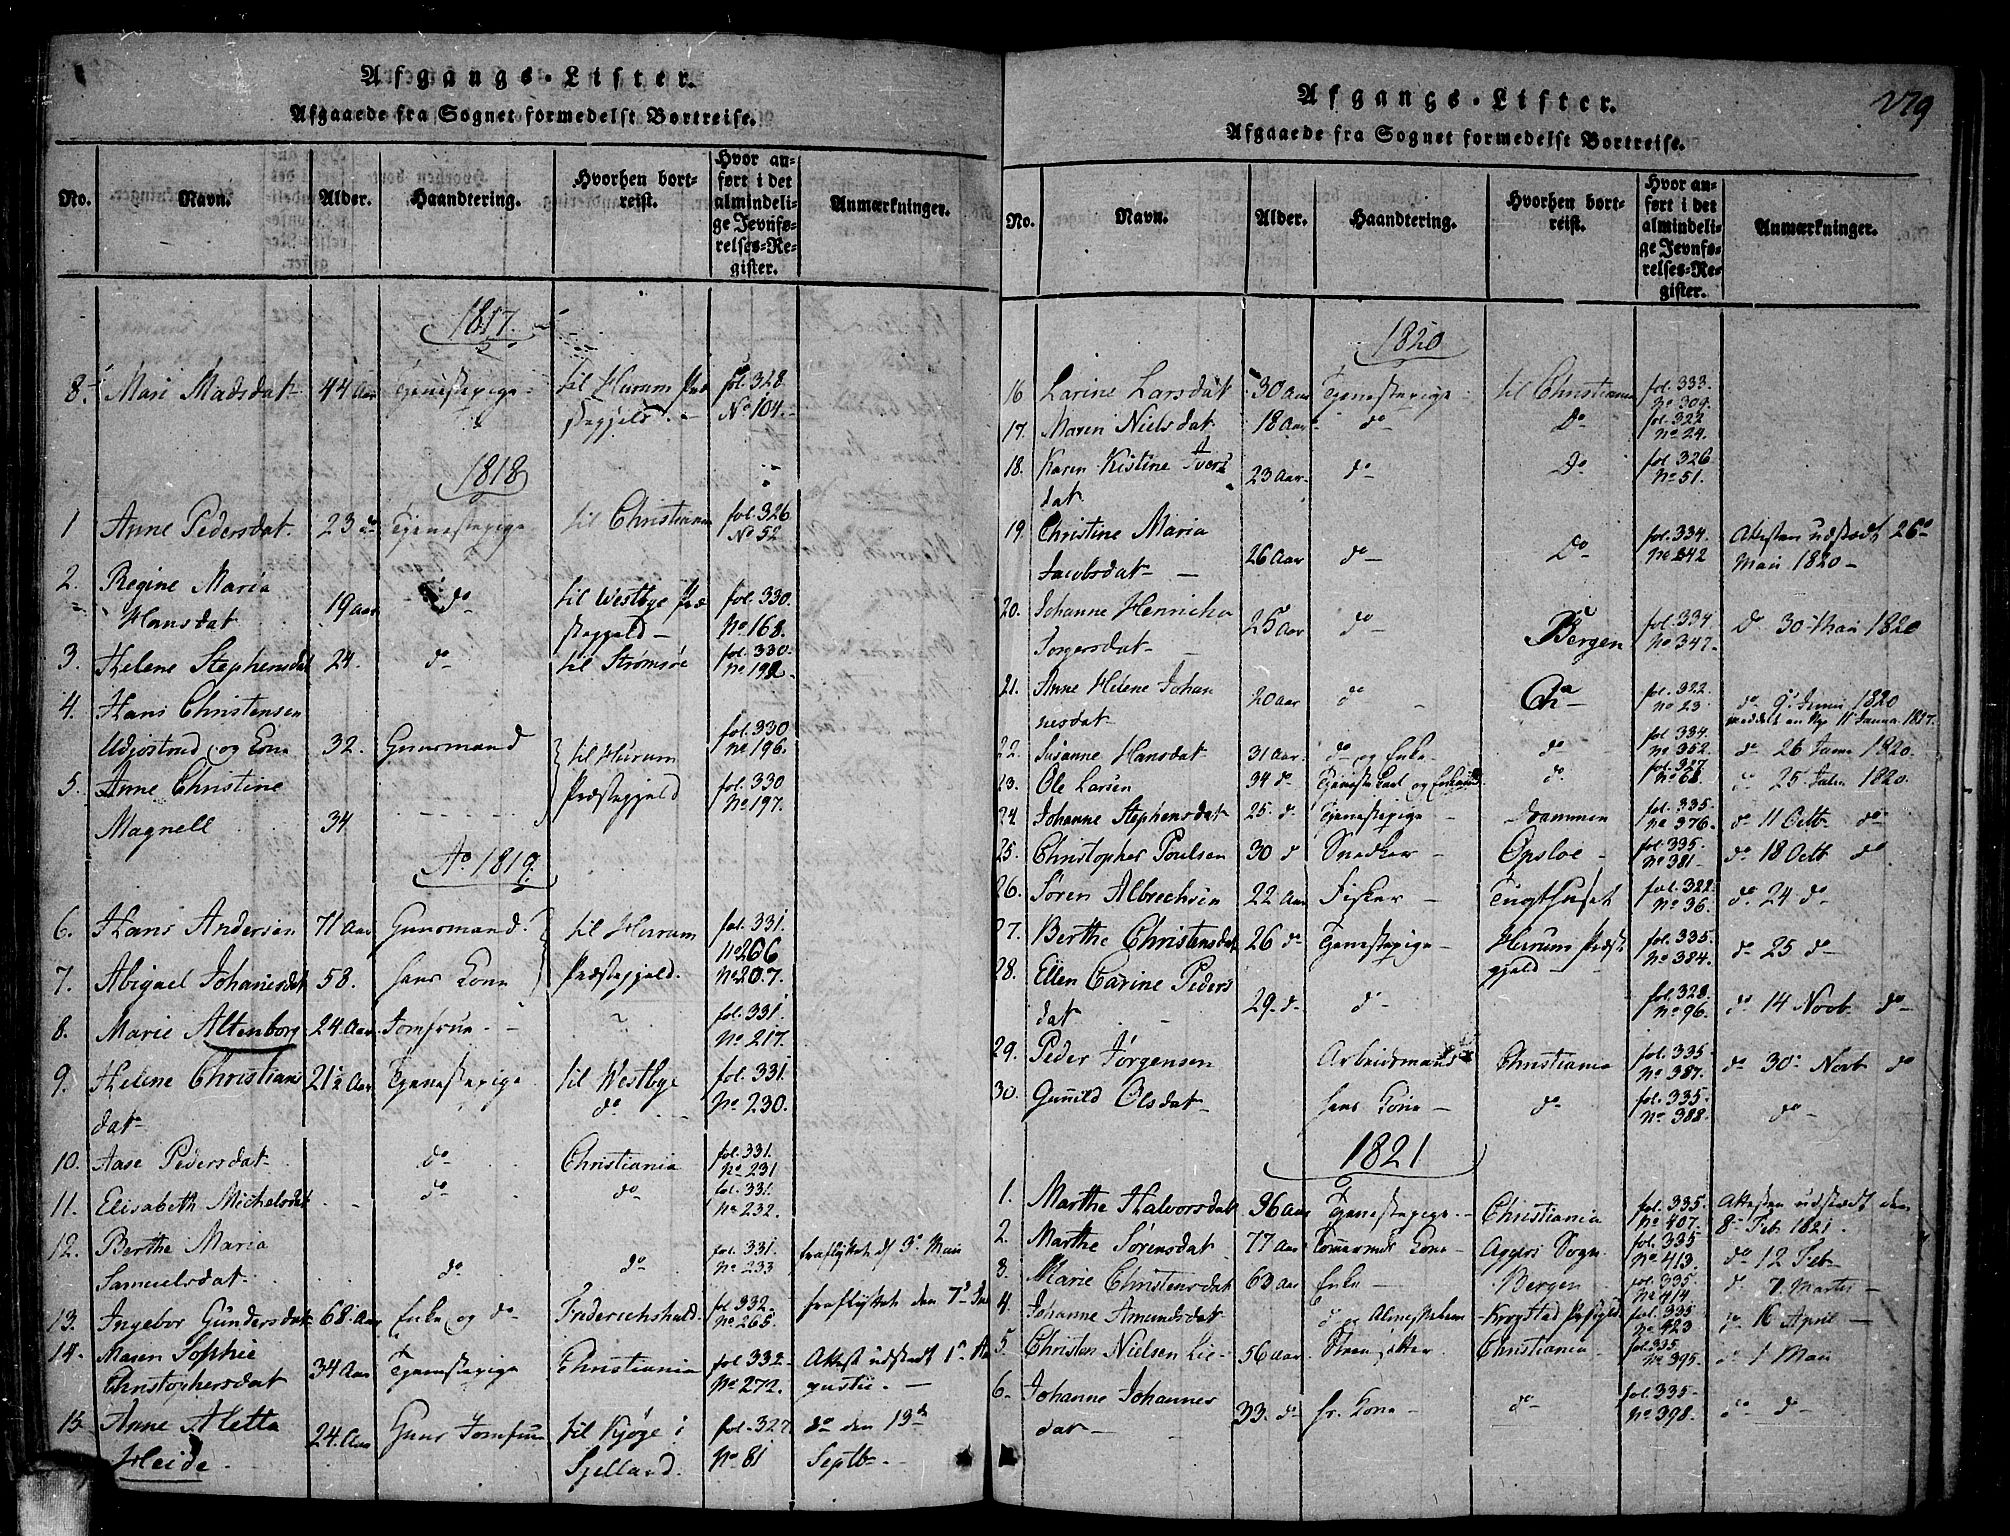 Afgangs-Lister.
Afgaaede fra Sognet formedelst Bortreise.
No. Navn. Alder. Haandtering. Hvorhen bortreist. Hvor anført i det almindelige Jevnførelses-Register. Anmærkninger.
1817.
8. Mari Madsdat 44 Aar Tjenestepige til Hurum Præstegjeld fol. 328 No 104.
1818
1 Anne Pedersdat. 23 do Tjenestepige til Christiania fol. 326 No 52
2. Regine Maria Hansdat 19 Aar do til Westbye Præstegjeld fol. 330. No 168.
3. Helene Stephensdat 24. do til Strømsøe fol. 330 No 192.
4. Hans Christensen og Kone 32. Gaardmand til Hurum fol. 330 No 196.
5. Anne Christine Magnell 34 Præstegjeld fol. 330 No 197.
Ao 1819.
6. Hans Andersen 71 Aar Gaardmand. til Hurum fol. 331. No 206
7. Abigael Johanisdat 58. hans Kone Præstegjeld. No 207.
8. Marie Altenborg 24. Aar Jomfrue fol. 331 No 217.
9. Helene Christiansdat 21½ Aar Tjenestepige til Westbye do fol. 331. No 230.
10. Aase Pedersdat do Christiania fol. 331. No 231
11. Elisabeth Michelsdat do do fol. 331. No 232.
12. Berthe Maria Samuelsdat do do fol. 331. No 233 fraflyttet d 3 Maii
13. Ingebor Gundersdat 68. Aar Enke og do Friderichshald fol. 332. No 265. fraflyttet den 7
14. Maren Sophie Christophersdat 34 Aar Tjenestepige Christiania fol. 332 No 272. Attest udstædt 1 Augustii.
15. Anne Aletta Heide 24. Aar Jomfrue til Kjøge i Sjelland. fol. 327 No 81 do den 19 Septb.
279
Afgangs-Lister.
Afgaaede fra Sognet formedelst Bortreise.
No. Navn. Alder. Haandtering. Hvorhen bortreist. Hvor anført i det almindelige Jevnførelses-Register. Anmærkninger.
1820
16 Larine Larsdat 30 Aar Tjenestepige til Christiania fol. 333. No 309.
17. Maren Nielsdat 18 Aar do Do fol. 322 No 24.
18. Karen Kistine Iversdat 23 Aar do Do fol. 326 No 51.
19. Christine Maria Jacobsdat 26 Aar do Do fol. 334. No 342 Attesten udstædt 26 Maii 1820
20. Johanne Henricha Torgersdat 25 Aar do Bergen fol. 334 No 347. Do 30 Maii 1820
21. Anne Helene Johannesdat 20 Aar do fol. 322. No 23 do 9 Junii 1820
22. Susanne Hansdat 31 Aar do og Enke do fol. 334. No 352 do 26 1820.
23. Ole Larsen 34 do Tjeneste Karl og do fol. 327 No 68 do 25 1820.
24. Johanne Stephensdat 25 do Tjenestepige Drammen fol. 335. No 376. do 11 Octb do
25. Christopher Poulsen 30 d Snedker Opsloe fol. 335. No 381 do 18 Octb do
26. Søren Albrechsen 22 Aar Fisker Tugthuset fol. 322. No 36. do 24 do
27. Berthe Christensdat 26 do Tjenestepige Hurum Præstegjeld fol. 335. No 384. do 25 do
28. Ellen Carine Pedersdat 29 do d fol. 328. No 96. do 14 Novb do
29. Peder Jørgensen Arbeidsmand Christiania fol. 335 No 387. do 30 Novb do
30. Gunild Olsdat hans Kone do fol. 335. No 388. do
1821
1. Marthe Halvorsdat 36 Aar Tjenestepige Christiania fol. 335. No 407. Attesten udstædt den 8 Feb 1821.
2. Marthe Sørensdat 77 Aar Kone Aggers Sogn fol. 335 No 413. do 12 Feb
3. Marie Christensdat 63 Aar Enke Bergen fol. 335. No 414 d 7 Martii
4. Johanne Amundsdat fol. 335 No 423 do 16 April
5. Christen Nielsen Lie 56 Aar Christiania fol. 335 No 395. do 1 Maii
6. Johanne Johannesdat 33. do hs. Kone do fol. 335 No 398. do d